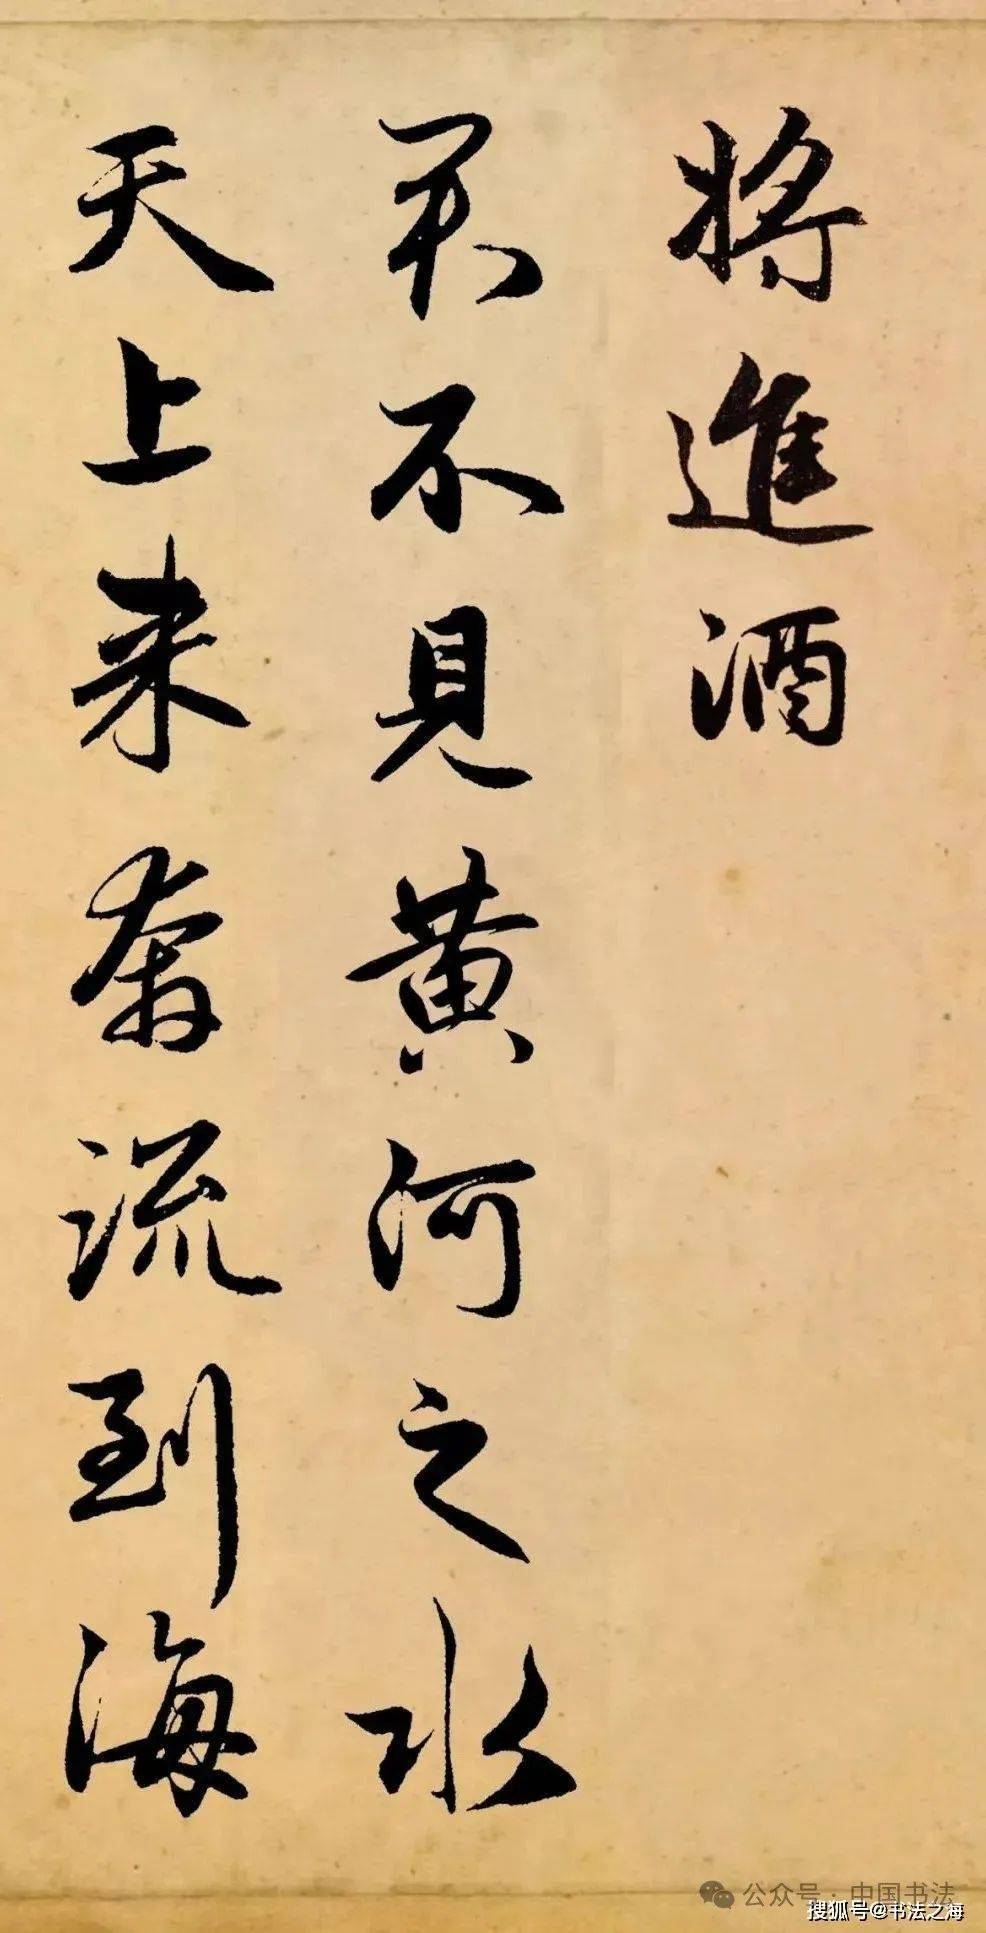 将進酒
君不見黄河之水
天上来奔流到海
公众号·中国书法
搜狐号@书法之海